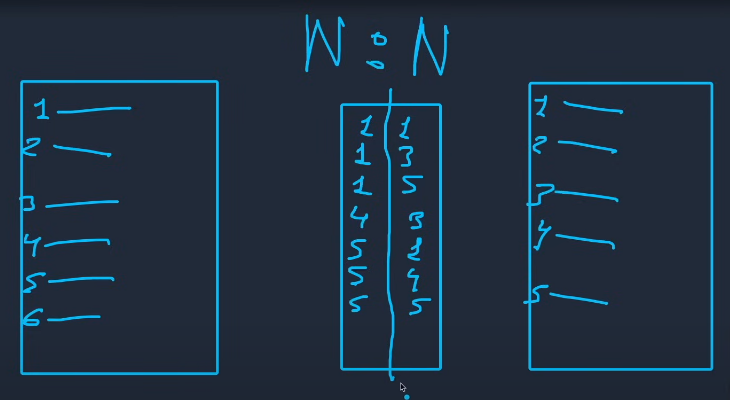 N : N
1
2
3
4
5
6
1 1
1 3
1 5
4 3
5
5 4
5 5
1
2
3
4
5